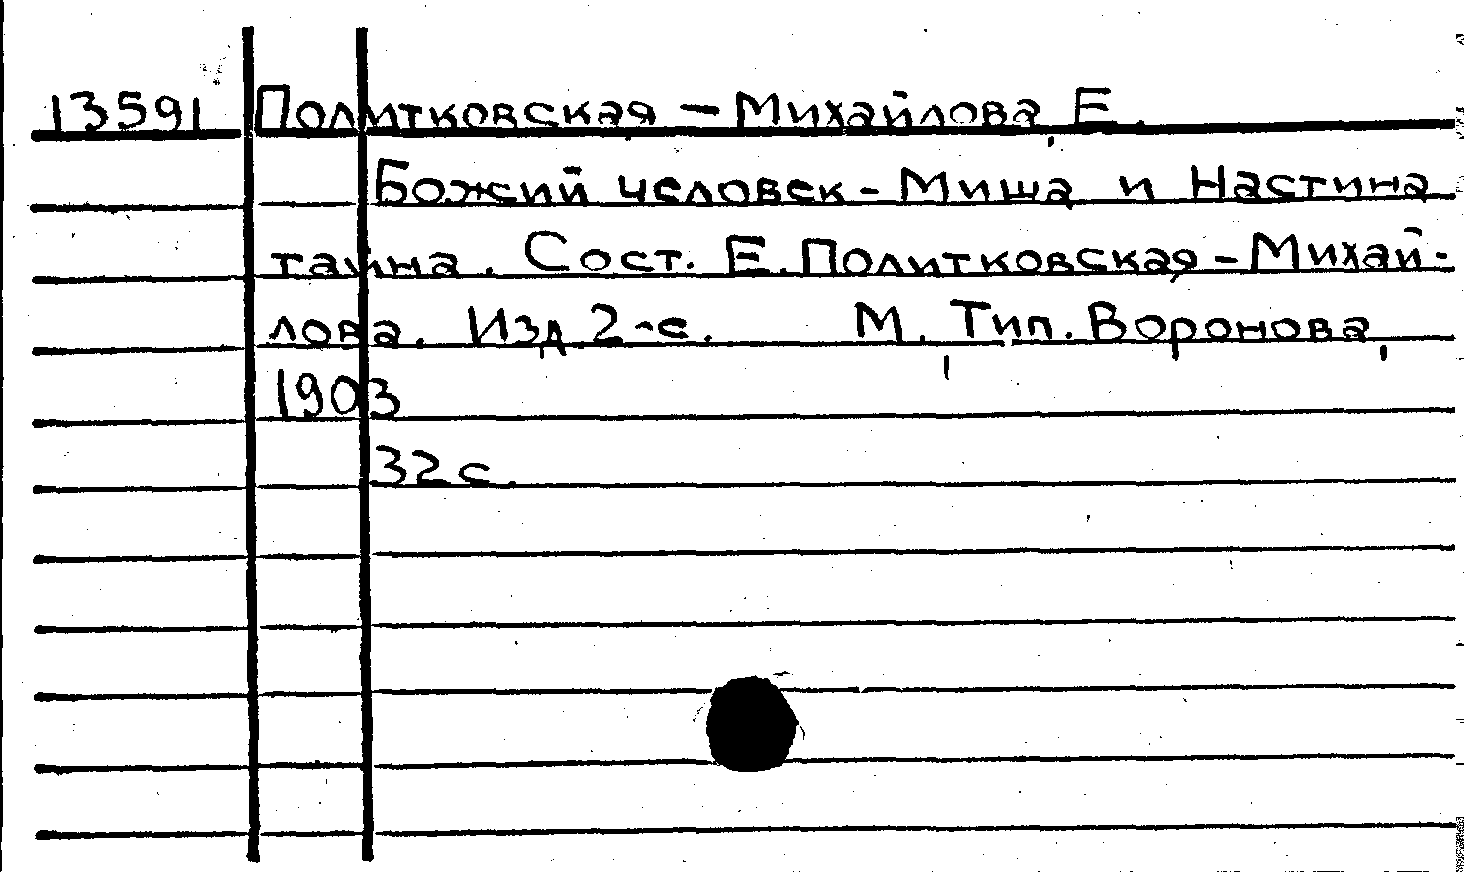 13591 Политковская - Михайлова, Е.
Божий человек - Миша и Настина
тайна. Сост. Е. Политковская - Михай-
лова. Изд. 2-е. М., Тип. Воронова,
1903
32 с.